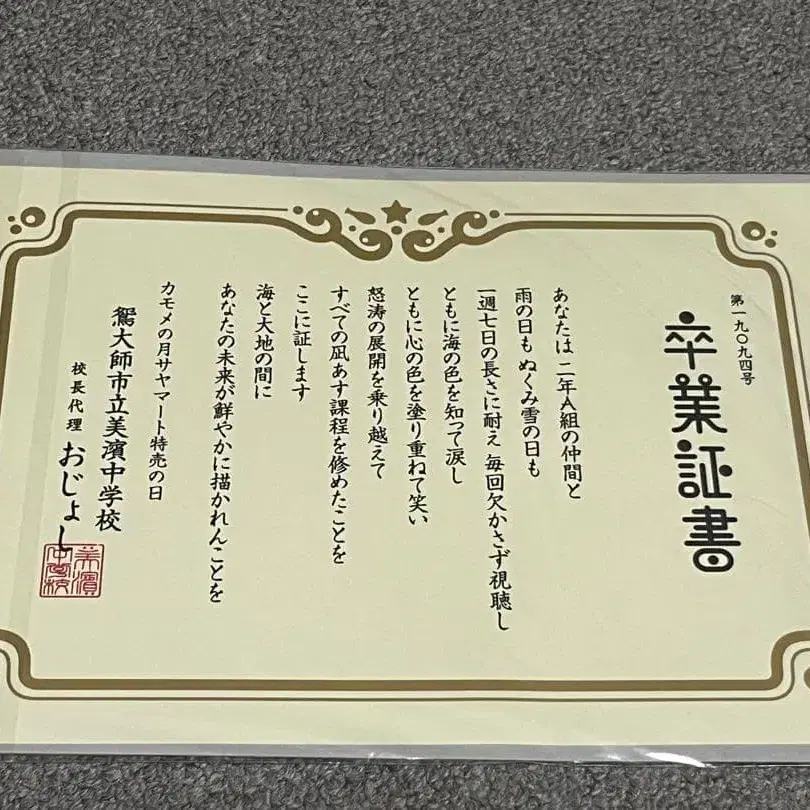 第一九〇九四号
卒業証書
あなたは 二年A組の仲間と
雨の日も ぬくみ雪の日も
一週七日の長さに耐え 毎回欠かさず視聴し
ともに海の色を知って涙し
ともに心の色を塗り重ねて笑い
怒涛の展開を乗り越えて
すべての凪あす課程を修めたことを
ここに証します
海と大地の間に
あなたの未来が鮮やかに描かれんことを
カモメの月サヤマート特売の日
鴛大師市立美濱中学校
校長代理 おじょし
美濱
中学校